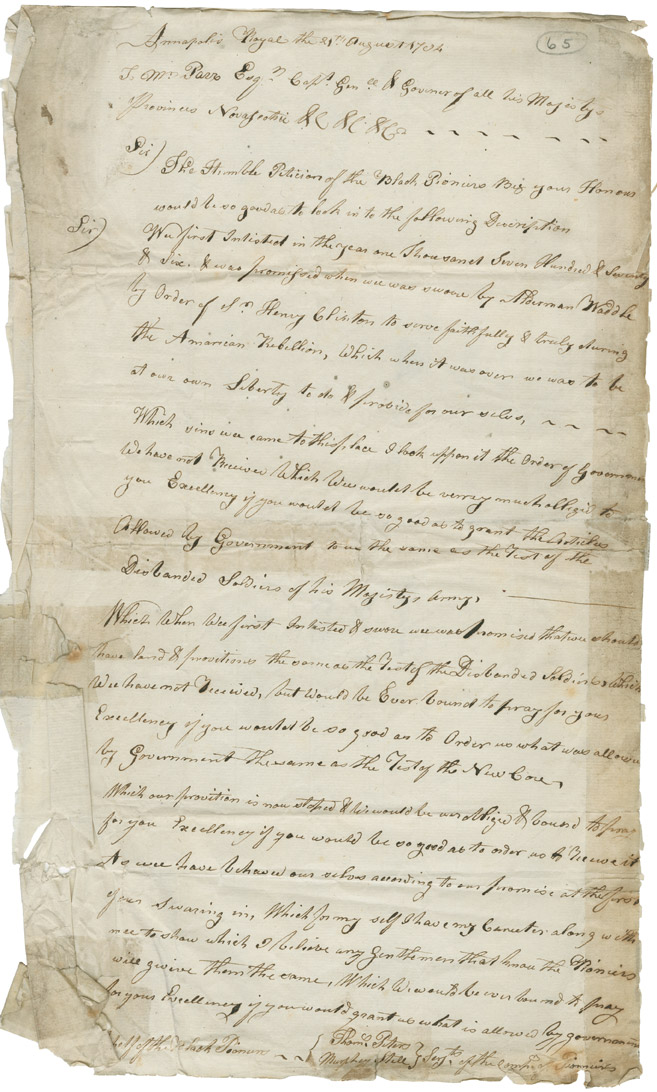 65
Annapolis Royal the 21st August 1784
To Mr Parr Esqr Capt Genll & Goviner of all his Majestys
Provinces Novascotiie &C &C &C
Sir)
The Humble Peticion of the Black Pioniers Beg your Honour
would be so good as to look in to the following Discription
Sir)
We first Intisted in the year one Thousand Seven Hundred & Seventy
& Six. & was promissed when wee was swore by Alderman Waddle
by Order of Sr Henry Clinton to serve faithfully & truly during
the Amarican Rebellion, Which when it was over we was to be
at our own Liberty to do & provide for our selvs,
Which sins wee came to this place I look uppon it the Order of Governmen
We have not Receive Which Wee would be verrey much obligd to
you Excellency if you would be so good as to grant the Articles
Allowed by Government to us the same as the Rest of the
Disbanded Soldiers of his Majestys Army,
Which When Wee first Intisted & swore wee was promised that wee should
have land & provitions the same as the Rest of the Disbanded Soldiers Which
Wee have not Received, but would be Ever bound to pray for your
Excellency if you would be so good as to Order us what was allowed
by Government the same as the Rest of the New Core,
Which our provition is now stoped & We would be ever obliged & bound to pray
for you Excellency if you would be so good as to order us to Receive it
As wee have behaved our selvs according to our promise at the first
of our Swaring in, Which for my self I have my Caracter along with
mee to show which I believe any Gentlemen that know the Pioniers
will givive them the same, Which We would be ever bound to pray
for your Excellency if you would grant us what is allowed by government
half of the Black Pioneers { Thoms Peters
Murphey Still } Serjts of the Compy Pionniers